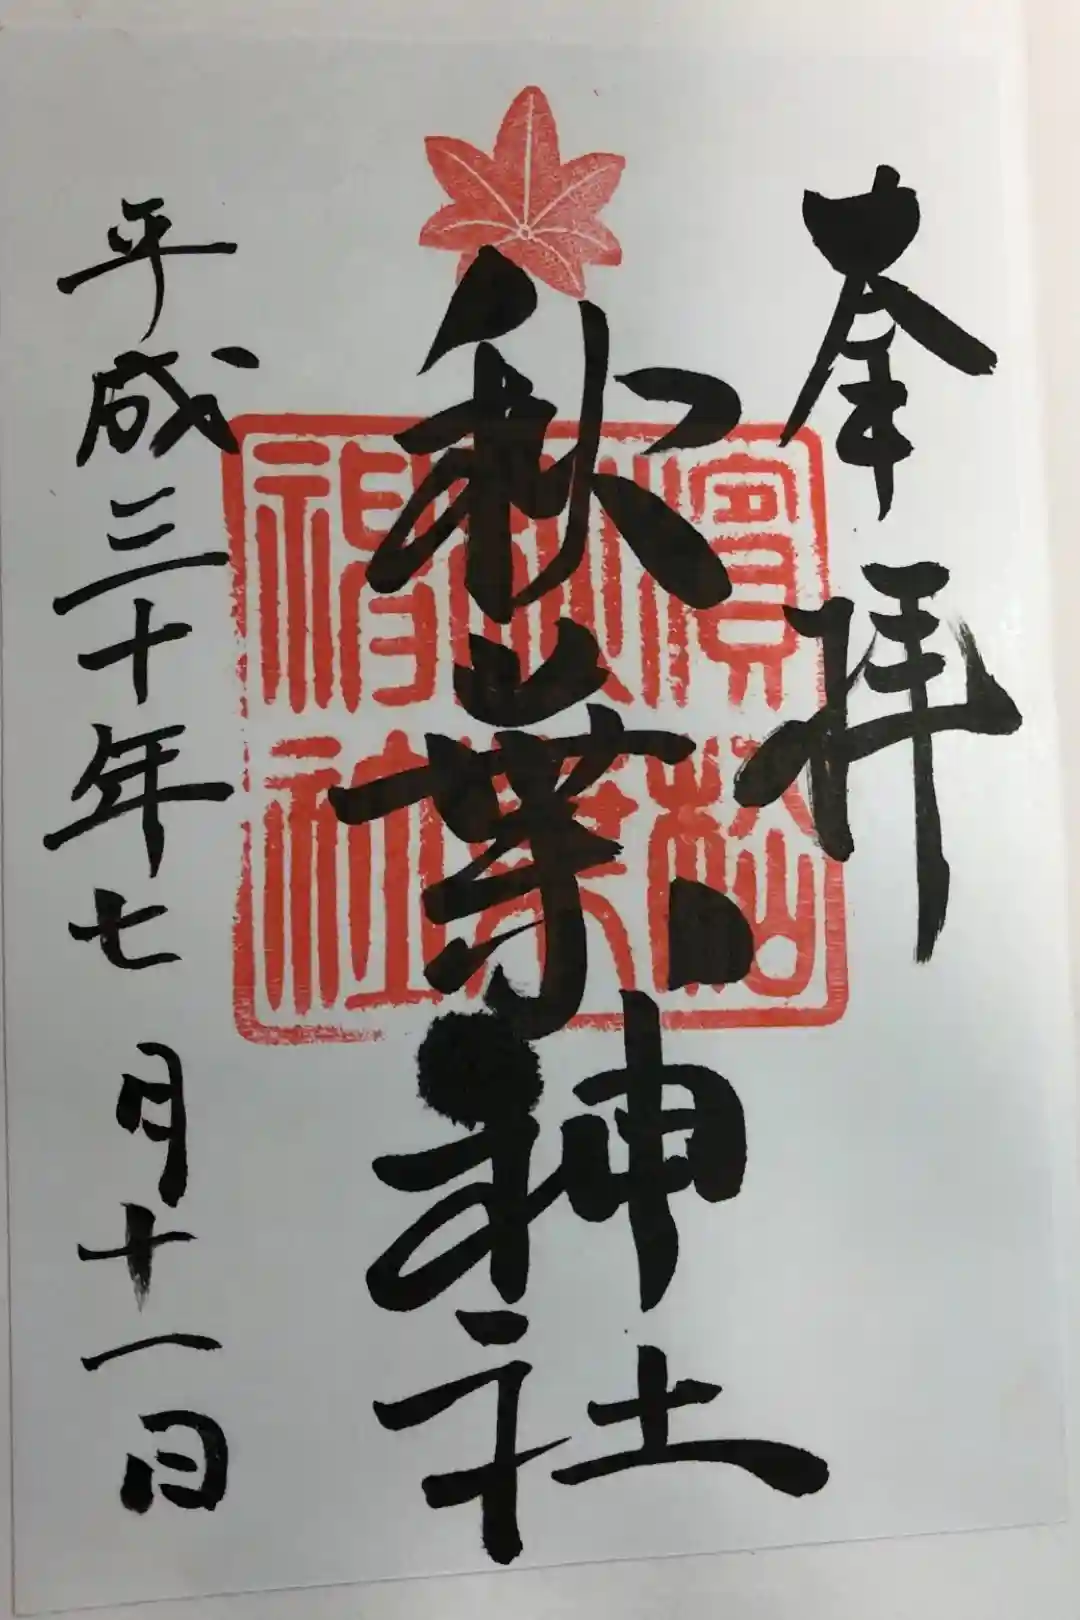 奉拝
秋葉神社
濱松
秋葉
神社
平成三十年七月十一日